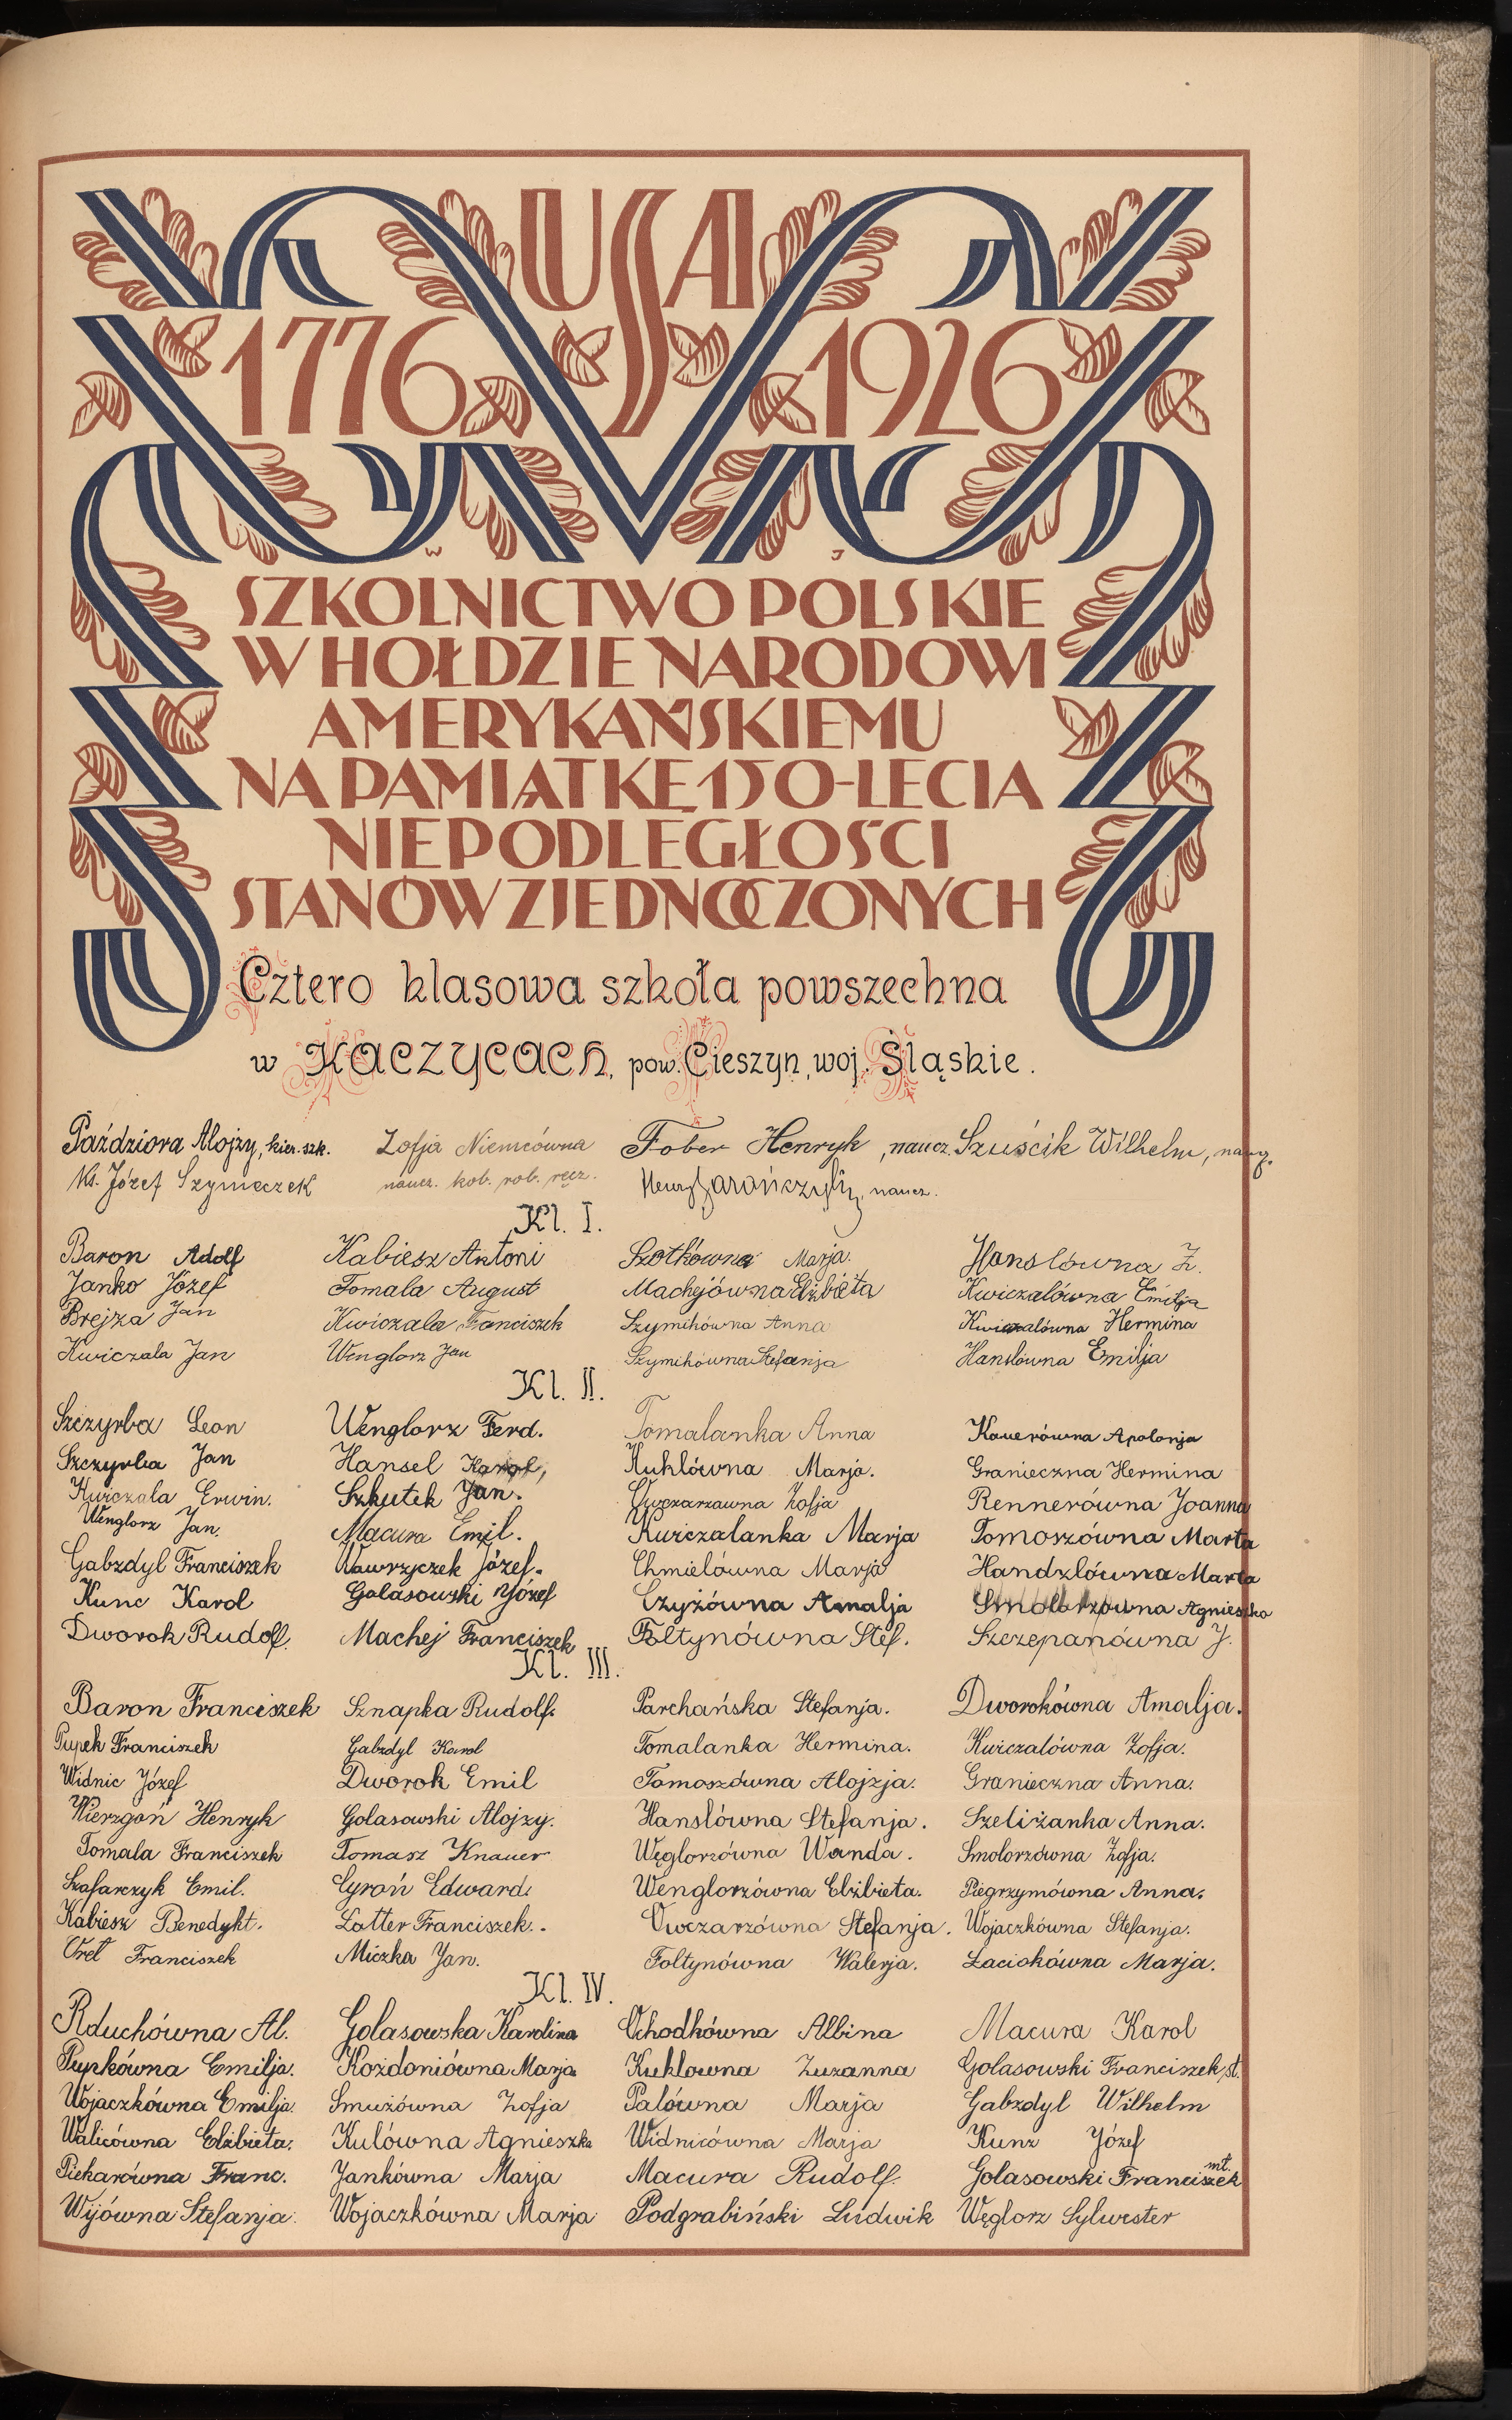 USA
1776 1926
W J
SZKOLNICTWO POLSKIE
W HOŁDZIE NARODOWI
AMERYKAŃSKIEMU
NA PAMIĄTKĘ 150-LECIA
NIEPODLEGŁOŚCI
STANÓW ZJEDNOCZONYCH
Cztero klasowa szkoła powszechna
w Kaczycach, pow. Cieszyn, woj. Śląskie.
Paździora Alojzy, kier. szk. Zofja Niemcówna Fober Henryk, naucz. Szuścik Wilhelm,
Ks. Józef Szymeczek naucz. kob. rob. ręcz. naucz.
Kl. I.
Baron Adolf Kabiesz Antoni Szotkówna Marja. Hanslówna Z.
Janko Józef Tomala August Machejówna Elżbieta Kwiczalówna Emilja
Brejza Jan Kwiczala Franciszek Szymikówna Anna Kwiczalówna Hermina
Kwiczala Jan Wenglorz Jan Szymikówna Stefanja Hanslówna Emilja
Kl. II.
Szczyrba Leon Wenglorz Ferd. Tomalanka Anna Kauerówna Apolonja
Szczyrba Jan Hansel Karol, Kuklówna Marja. Granieczna Hermina
Kwiczala Erwin. Szkutek Jan. Owczarzawna Zofja Rennerówna Joanna
Wenglorz Jan. Macura Emil. Kwiczalanka Marja Tomoszówna Marta
Gabzdyl Franciszek Wawrzyczek Józef. Chmielówna Marja Handzlówna Marta
Kunc Karol Golasowski Józef Czyżówna Amalja Smolorzówna Agnieszka
Dworok Rudolf. Machej Franciszek Foltynówna Stef. Szczepanówna J.
Kl. III.
Baron Franciszek Sznapka Rudolf. Parchańska Stefanja. Dworokówna Amalja.
Pupek Franciszek Gabzdyl Karol Tomalanka Hermina. Kwiczalówna Zofja.
Widnic Józef Dworok Emil Tomoszówna Alojzja. Granieczna Anna.
Wierzgoń Henryk Golasowski Alojzy. Hanslówna Stefanja. Szeliżanka Anna.
Tomala Franciszek Tomasz Knauer Węglorzówna Wanda. Smolorzówna Zofja.
Szafarczyk Emil. Cyroń Edward. Wenglorzówna Elżbieta. Piegrzymówna Anna.
Kabiesz Benedykt. Łatter Franciszek. Owczarzówna Stefanja. Wojaczkówna Stefanja.
Oreł Franciszek Miczka Jan. Foltynówna Walerja. Łaciokówna Marja.
Kl. IV.
Rduchówna Al. Golasowska Karolina Ochodkówna Albina Macura Karol
Pupkówna Emilja. Kożdoniówna Marja Kuklowna Zuzanna Golasowski Franciszek st.
Wojaczkówna Emilja. Smużówna Zofja Palówna Marja Gabzdyl Wilhelm
Walicówna Elżbieta. Kulówna Agnieszka Widnicówna Marja Kunz Józef
Piekarówna Franc. Jankówna Marja Macura Rudolf. Golasowski Franciszek mł.
Wijówna Stefanja. Wojaczkówna Marja Podgrabiński Ludwik Węglorz Sylwester